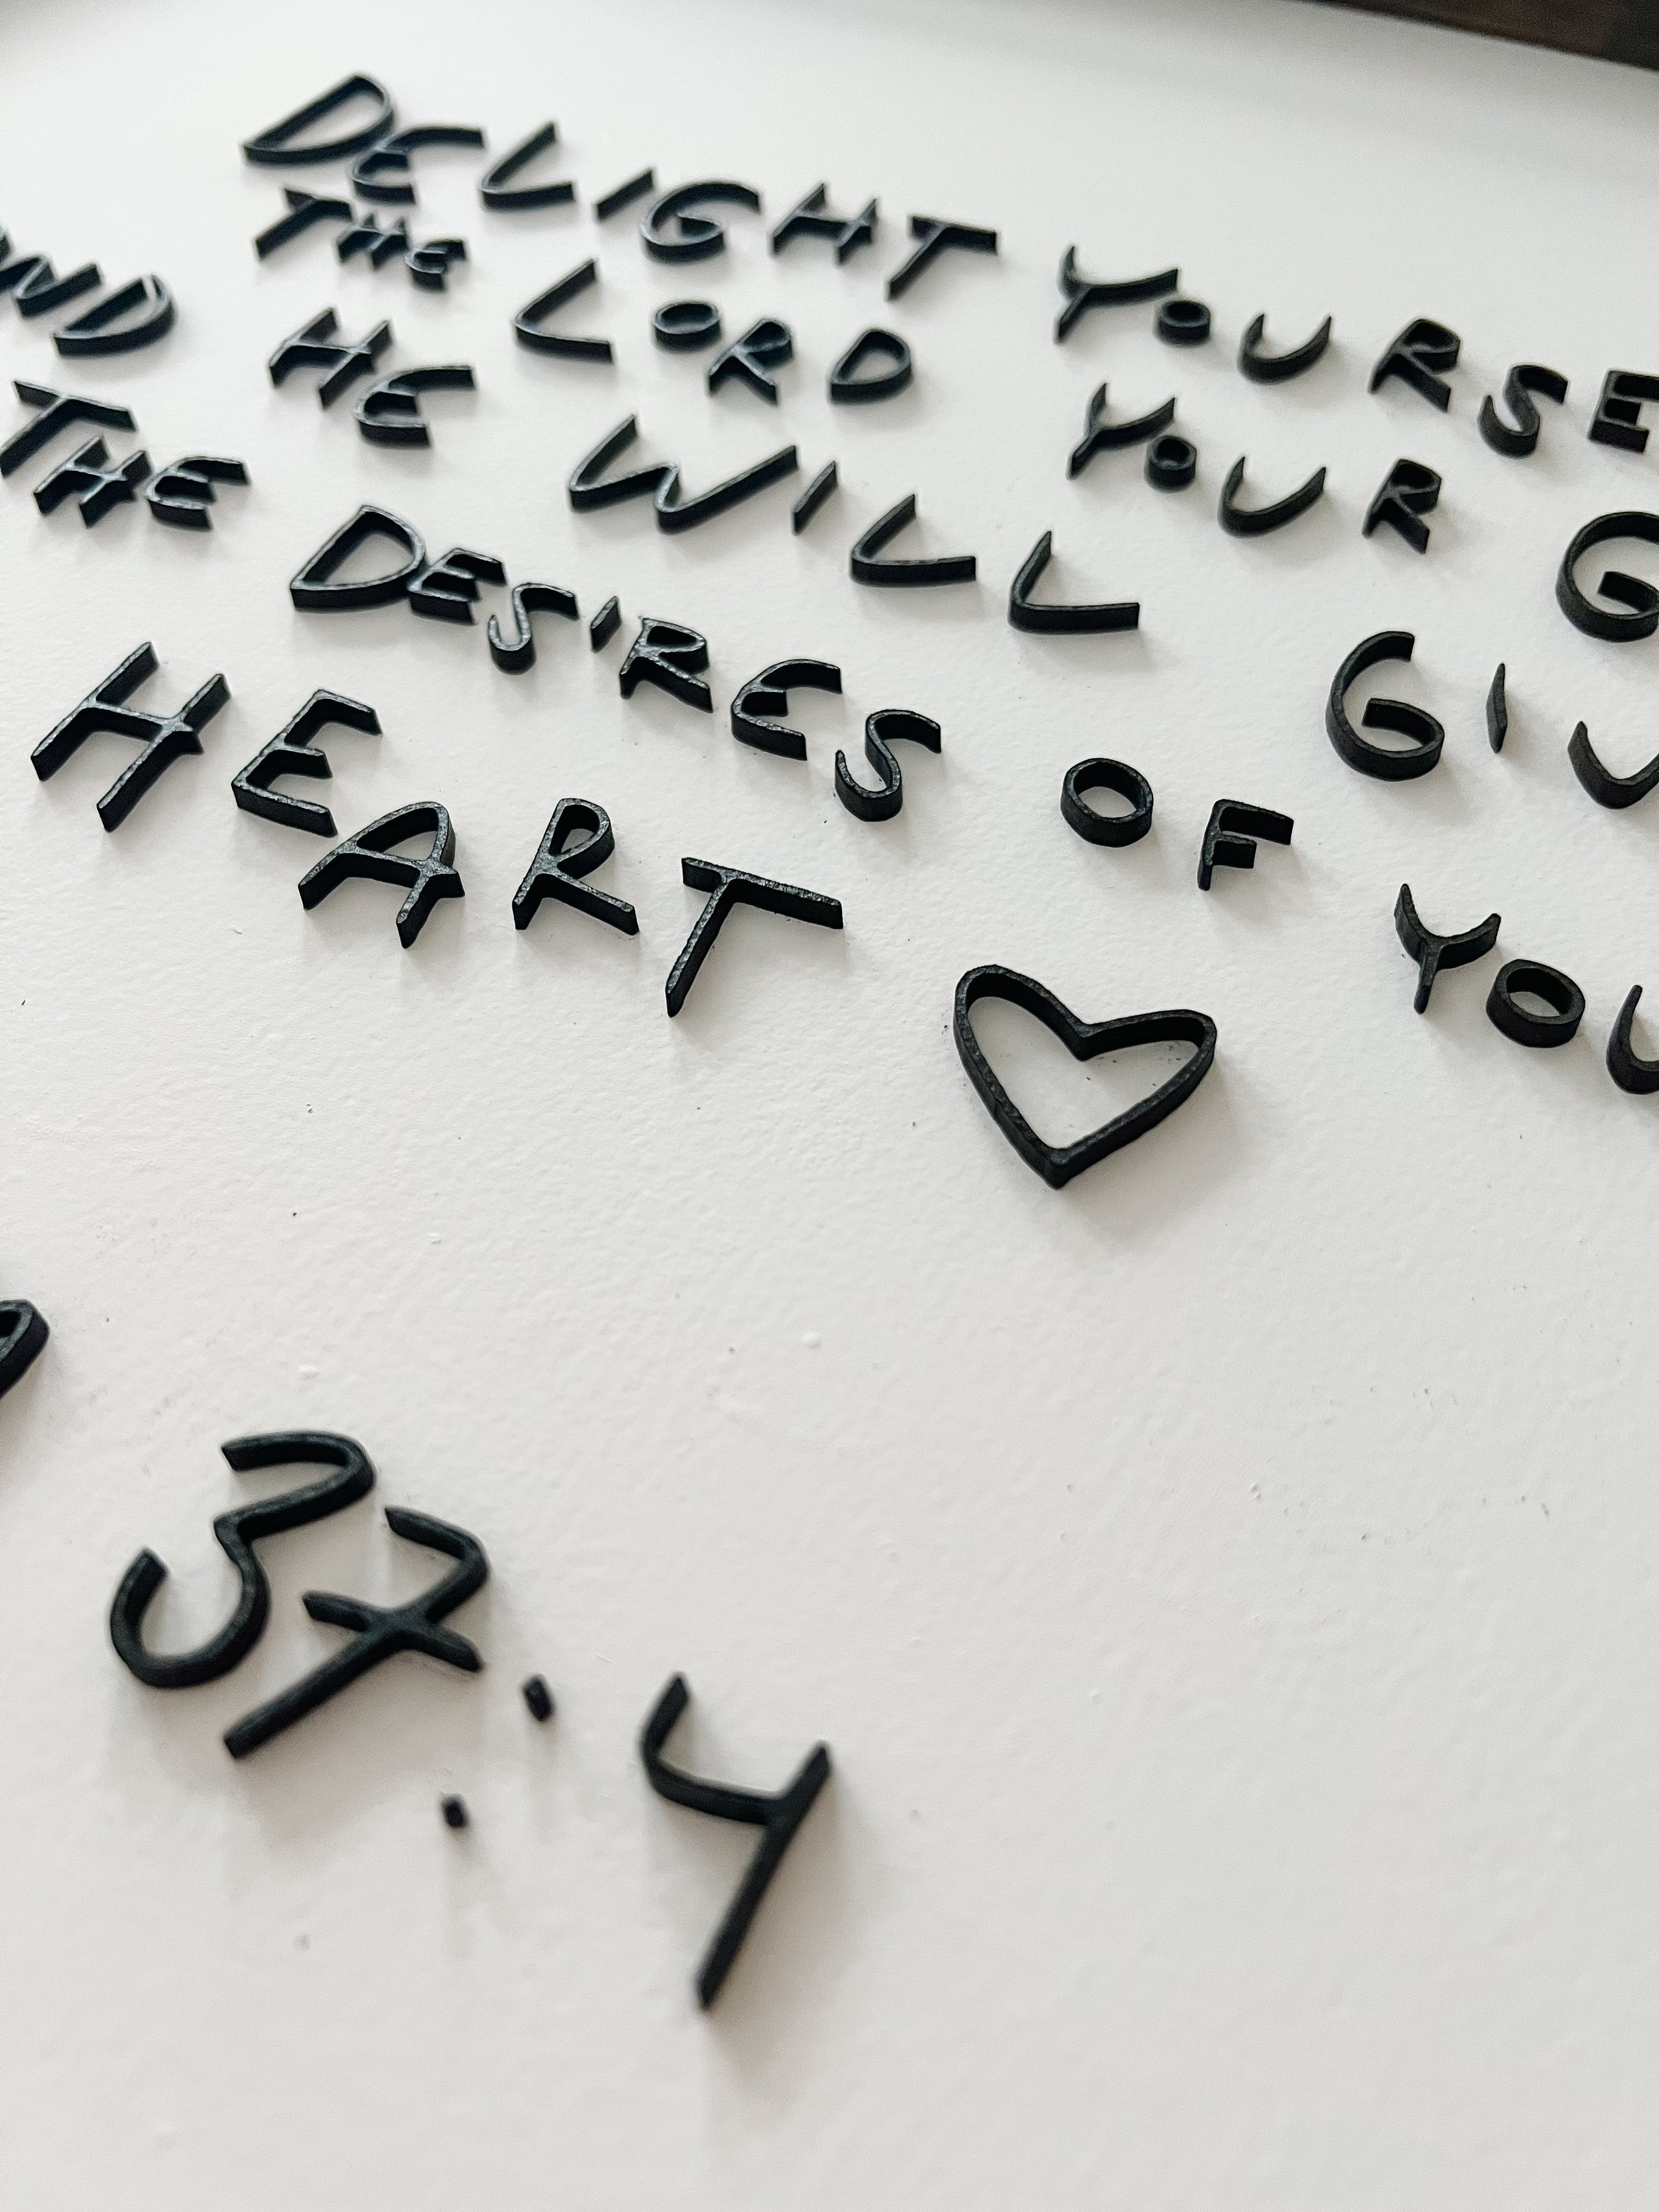 DELIGHT YOURSE
THE LORD YOUR G
ND HE WILL GIV
THE DESIRES OF YOU
HEART
37:4